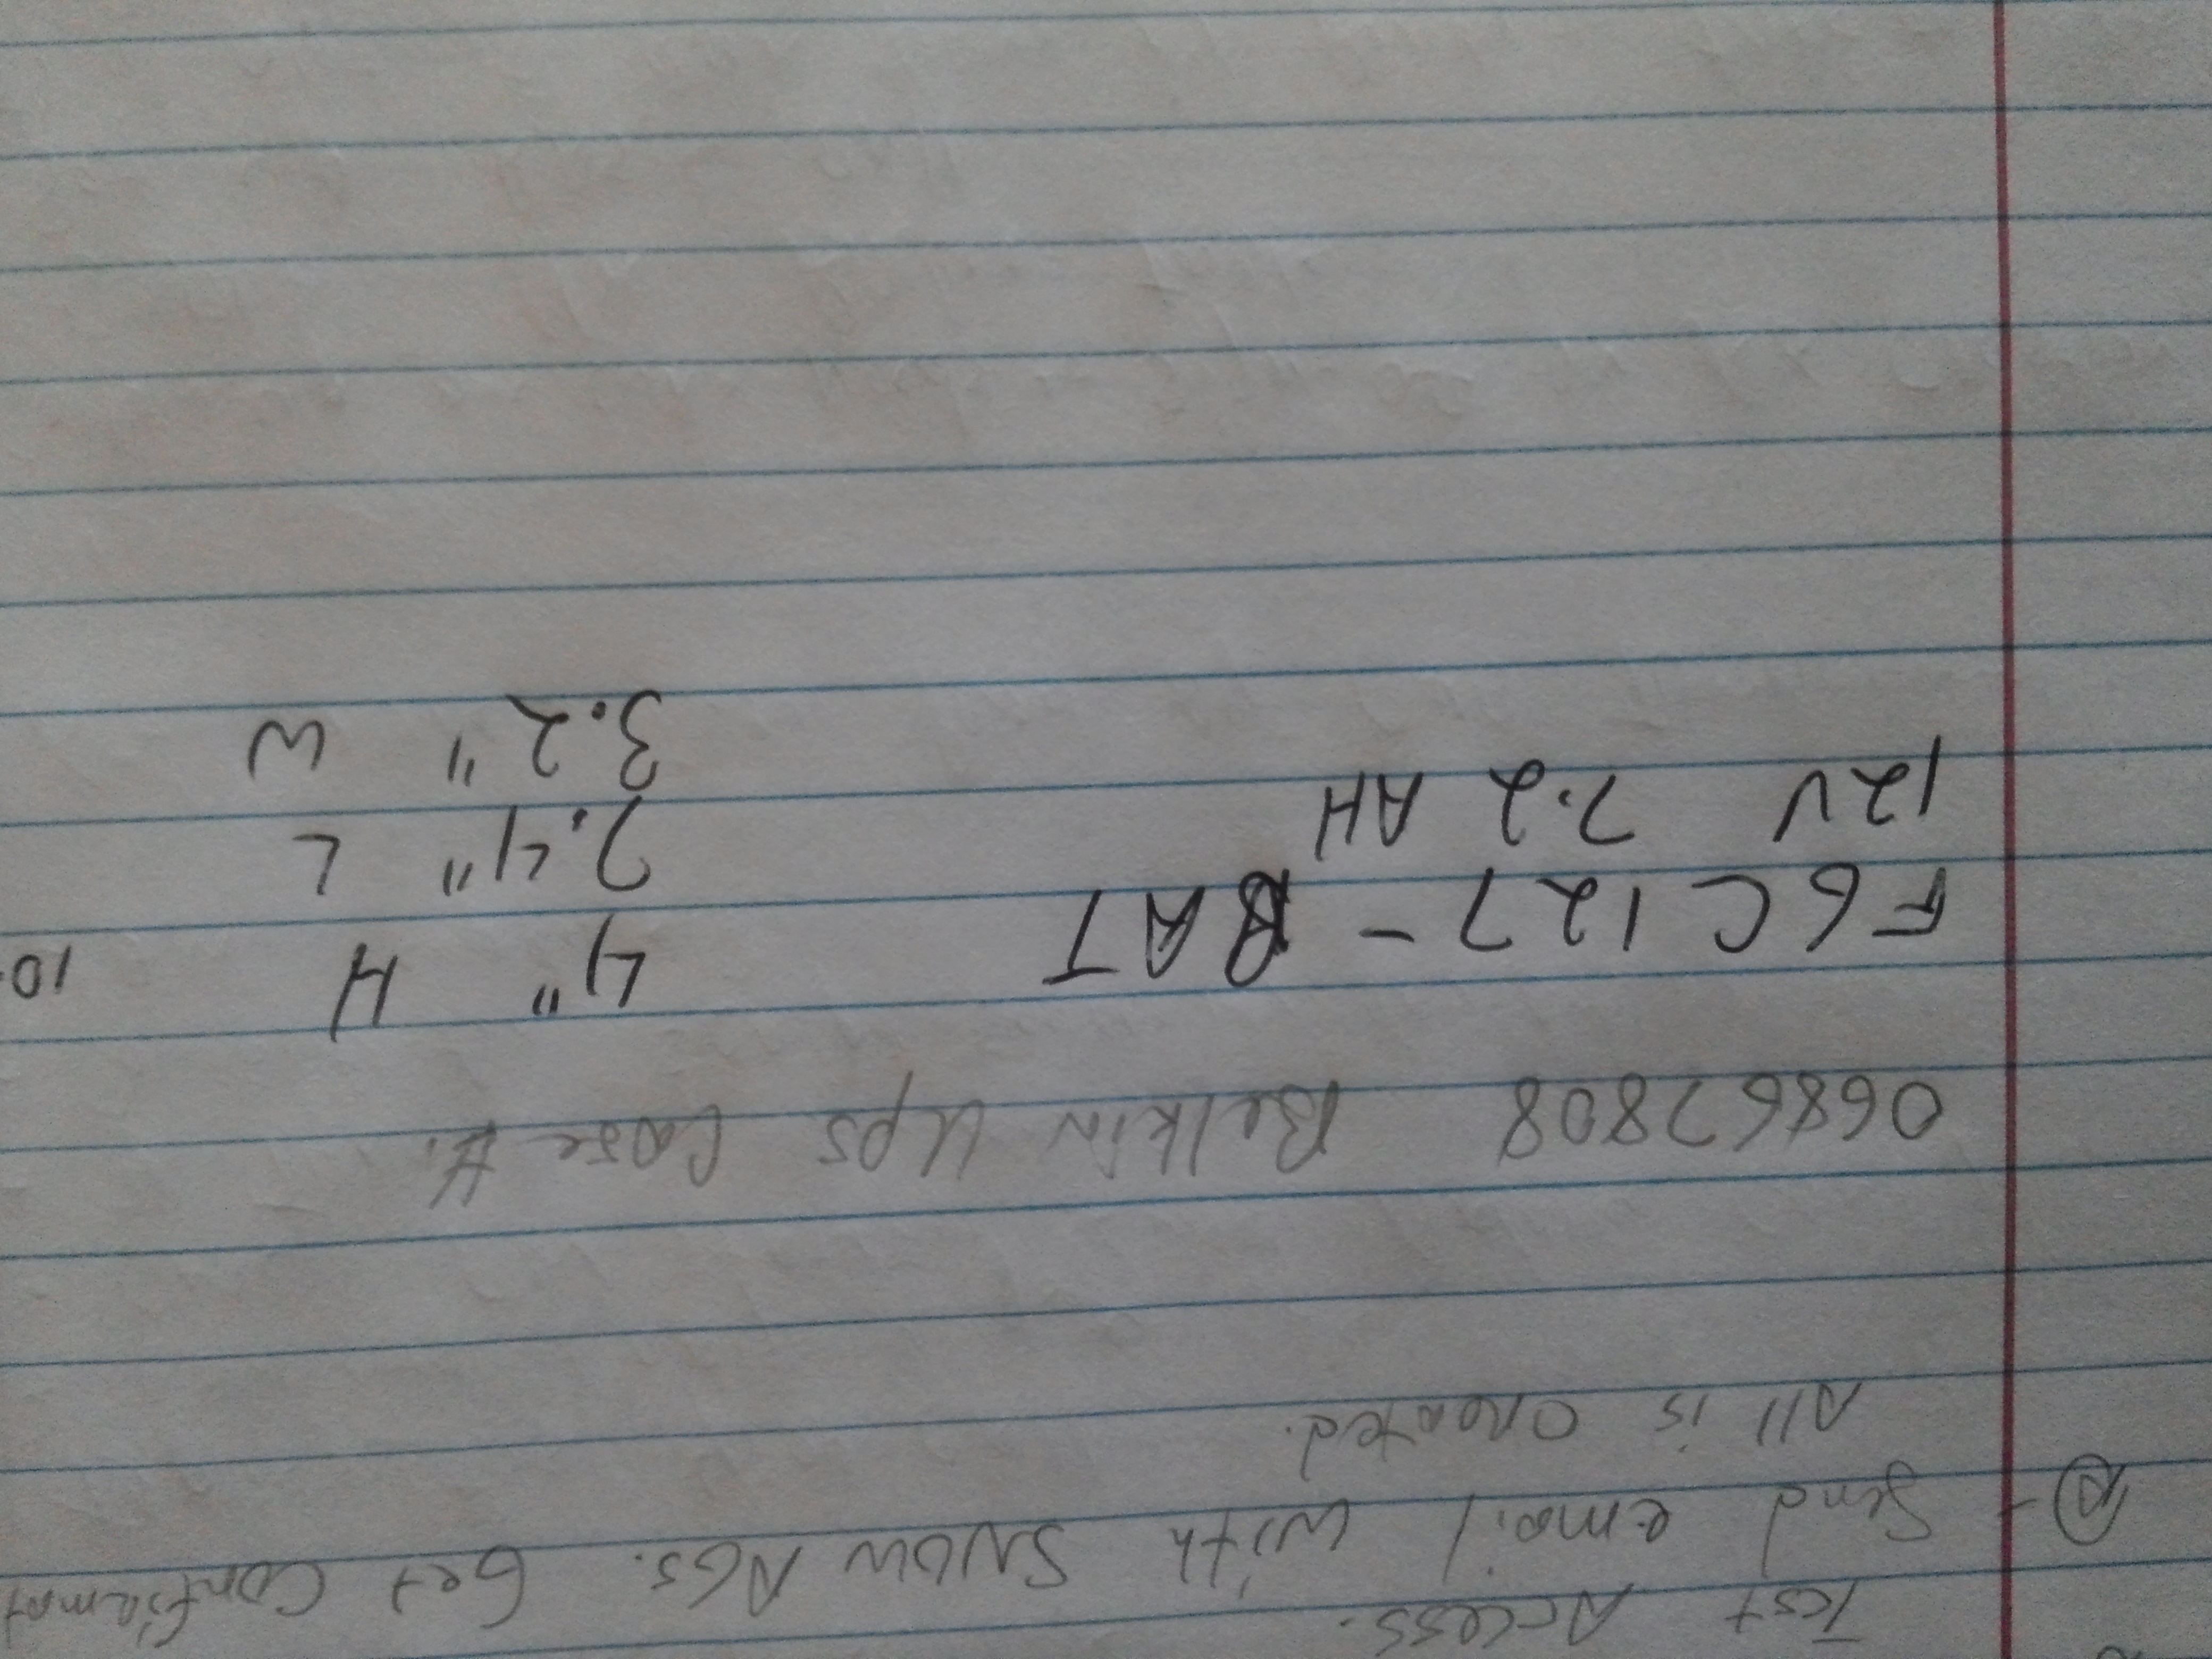 Test Access.
Ⓐ - Send email with SNOW AGS. Get Confirmat
All is created.
06867808 Belkin Ups Case #.
F6C127-BAT 4" H 10.
12V 7.2 AH 7.4" L
3.2" W